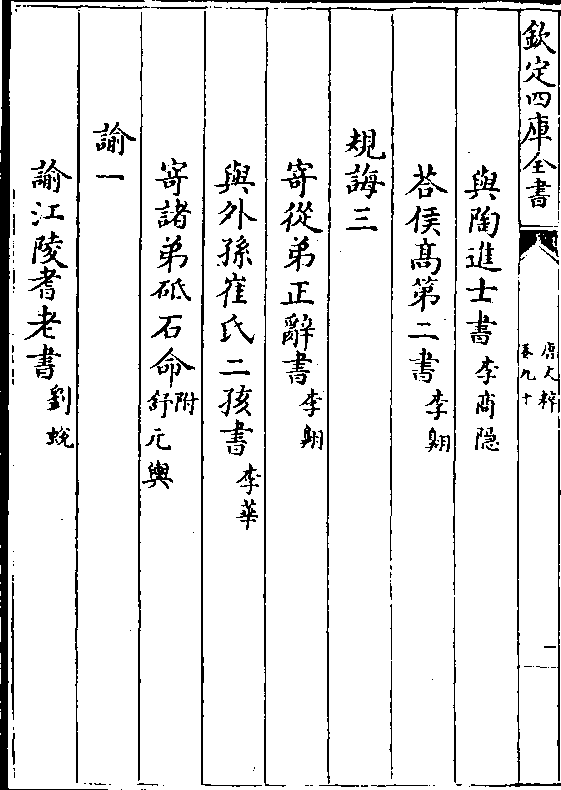 欽定四庫全書
唐文粹
卷九十
一
與陶進士書 李商隠
荅侯髙第二書 李翺
規誨三
寄從弟正辭書 李翺
與外孫崔氏二孩書 李華
寄諸弟砥石命 附 舒元輿
諭一
諭江陵耆老書 劉蛻